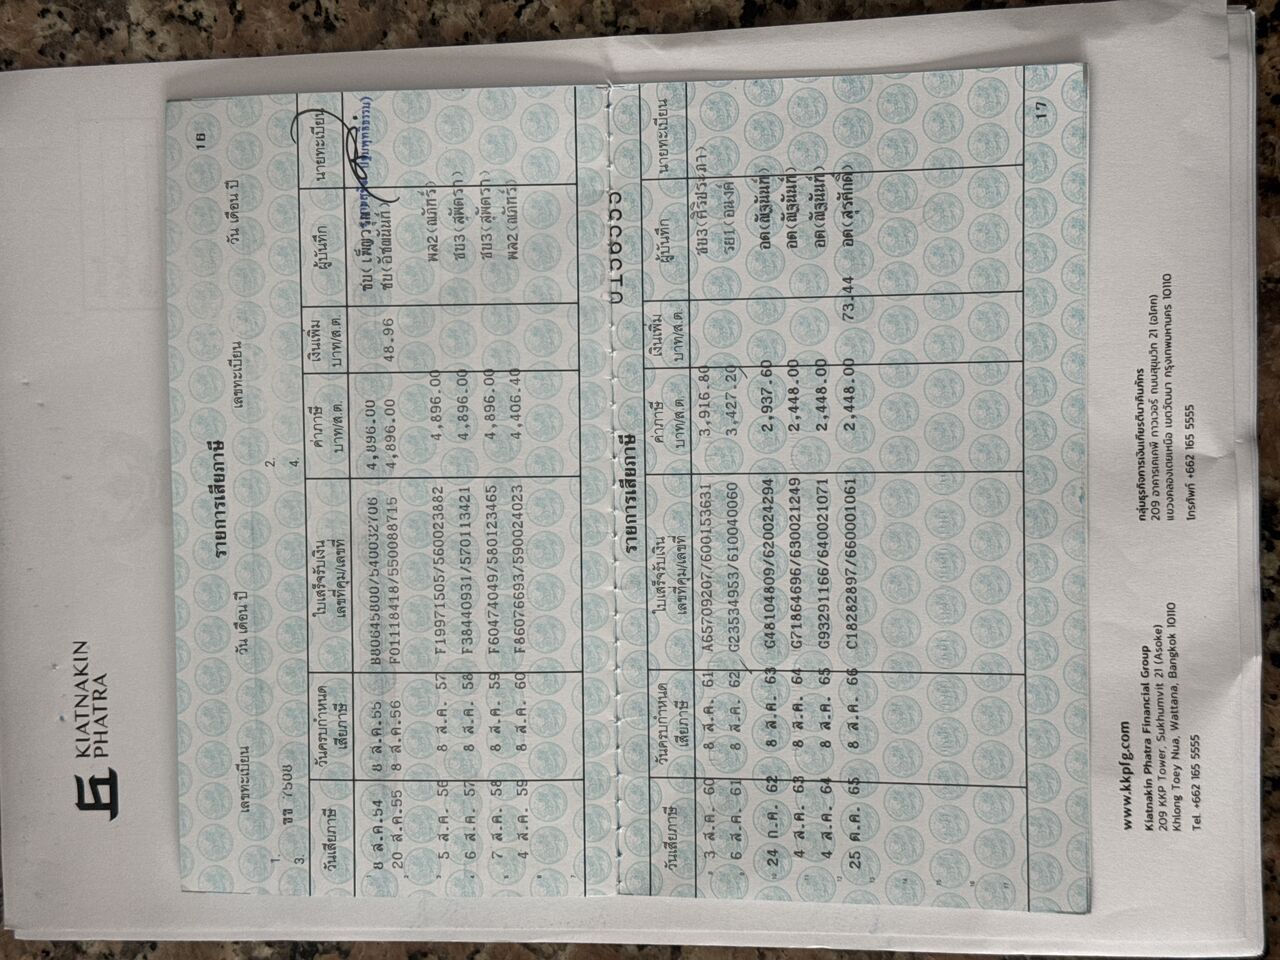 KIATNAKIN
PHATRA
16
รายการเสียภาษี
เลขทะเบียน วัน เดือน ปี เลขทะเบียน วัน เดือน ปี
1. 2.
3. 4.
7508
วันเสียภาษี วันครบกำหนดเสียภาษี ใบเสร็จรับเงิน เลขที่คุม/เลขที่ ค่าภาษี บาท/ส.ต. เงินเพิ่ม บาท/ส.ต. ผู้บันทึก นายทะเบียน
8 ส.ค.54 8 ส.ค.55 B80645800/540032706 4,896.00
20 ส.ค.55 8 ส.ค.56 F01118418/550088715 4,896.00 48.96
5 ส.ค. 56 8 ส.ค. 57 F19971505/560023882 4,896.00 พล2(ณภัทร์)
6 ส.ค. 57 8 ส.ค. 58 F38440931/570113421 4,896.00 ชบ3(สุพัตรา)
7 ส.ค. 58 8 ส.ค. 59 F60474049/580123465 4,896.00 ชบ3(สุพัตรา)
4 ส.ค. 59 8 ส.ค. 60 F86076693/590024023 4,406.40 พล2(ณภัทร์)
รายการเสียภาษี
0158555
วันเสียภาษี วันครบกำหนดเสียภาษี ใบเสร็จรับเงิน เลขที่คุม/เลขที่ ค่าภาษี บาท/ส.ต. เงินเพิ่ม บาท/ส.ต. ผู้บันทึก นายทะเบียน
3 ส.ค. 60 8 ส.ค. 61 A65709207/600153631 3,916.80 ชบ3(ศิริประภา)
6 ส.ค. 61 8 ส.ค. 62 G23534953/610040060 3,427.20 รย1(อนงค์)
24 ก.ค. 62 8 ส.ค. 63 G48104809/620024294 2,937.60 อต(ณัฐนันท์)
4 ส.ค. 63 8 ส.ค. 64 G71864696/630021249 2,448.00 อต(ณัฐนันท์)
4 ส.ค. 64 8 ส.ค. 65 G93291166/640021071 2,448.00 อต(ณัฐนันท์)
25 ต.ค. 65 8 ส.ค. 66 C18282897/660001061 2,448.00 73.44 อต(สุรศักดิ์)
17
www.kkpfg.com
Kiatnakin Phatra Financial Group
209 KKP Tower, Sukhumvit 21 (Asoke)
Khlong Toey Nua, Wattana, Bangkok 10110
Tel. +662 165 5555
กลุ่มธุรกิจการเงินเกียรตินาคินภัทร
209 อาคารเคเคพี ทาวเวอร์ ถนนสุขุมวิท 21 (อโศก)
แขวงคลองเตยเหนือ เขตวัฒนา กรุงเทพมหานคร 10110
โทรศัพท์ +662 165 5555